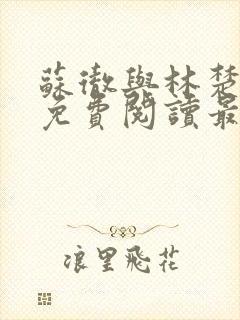 蘇徹與林楚
免費閱讀最
浪里飛花